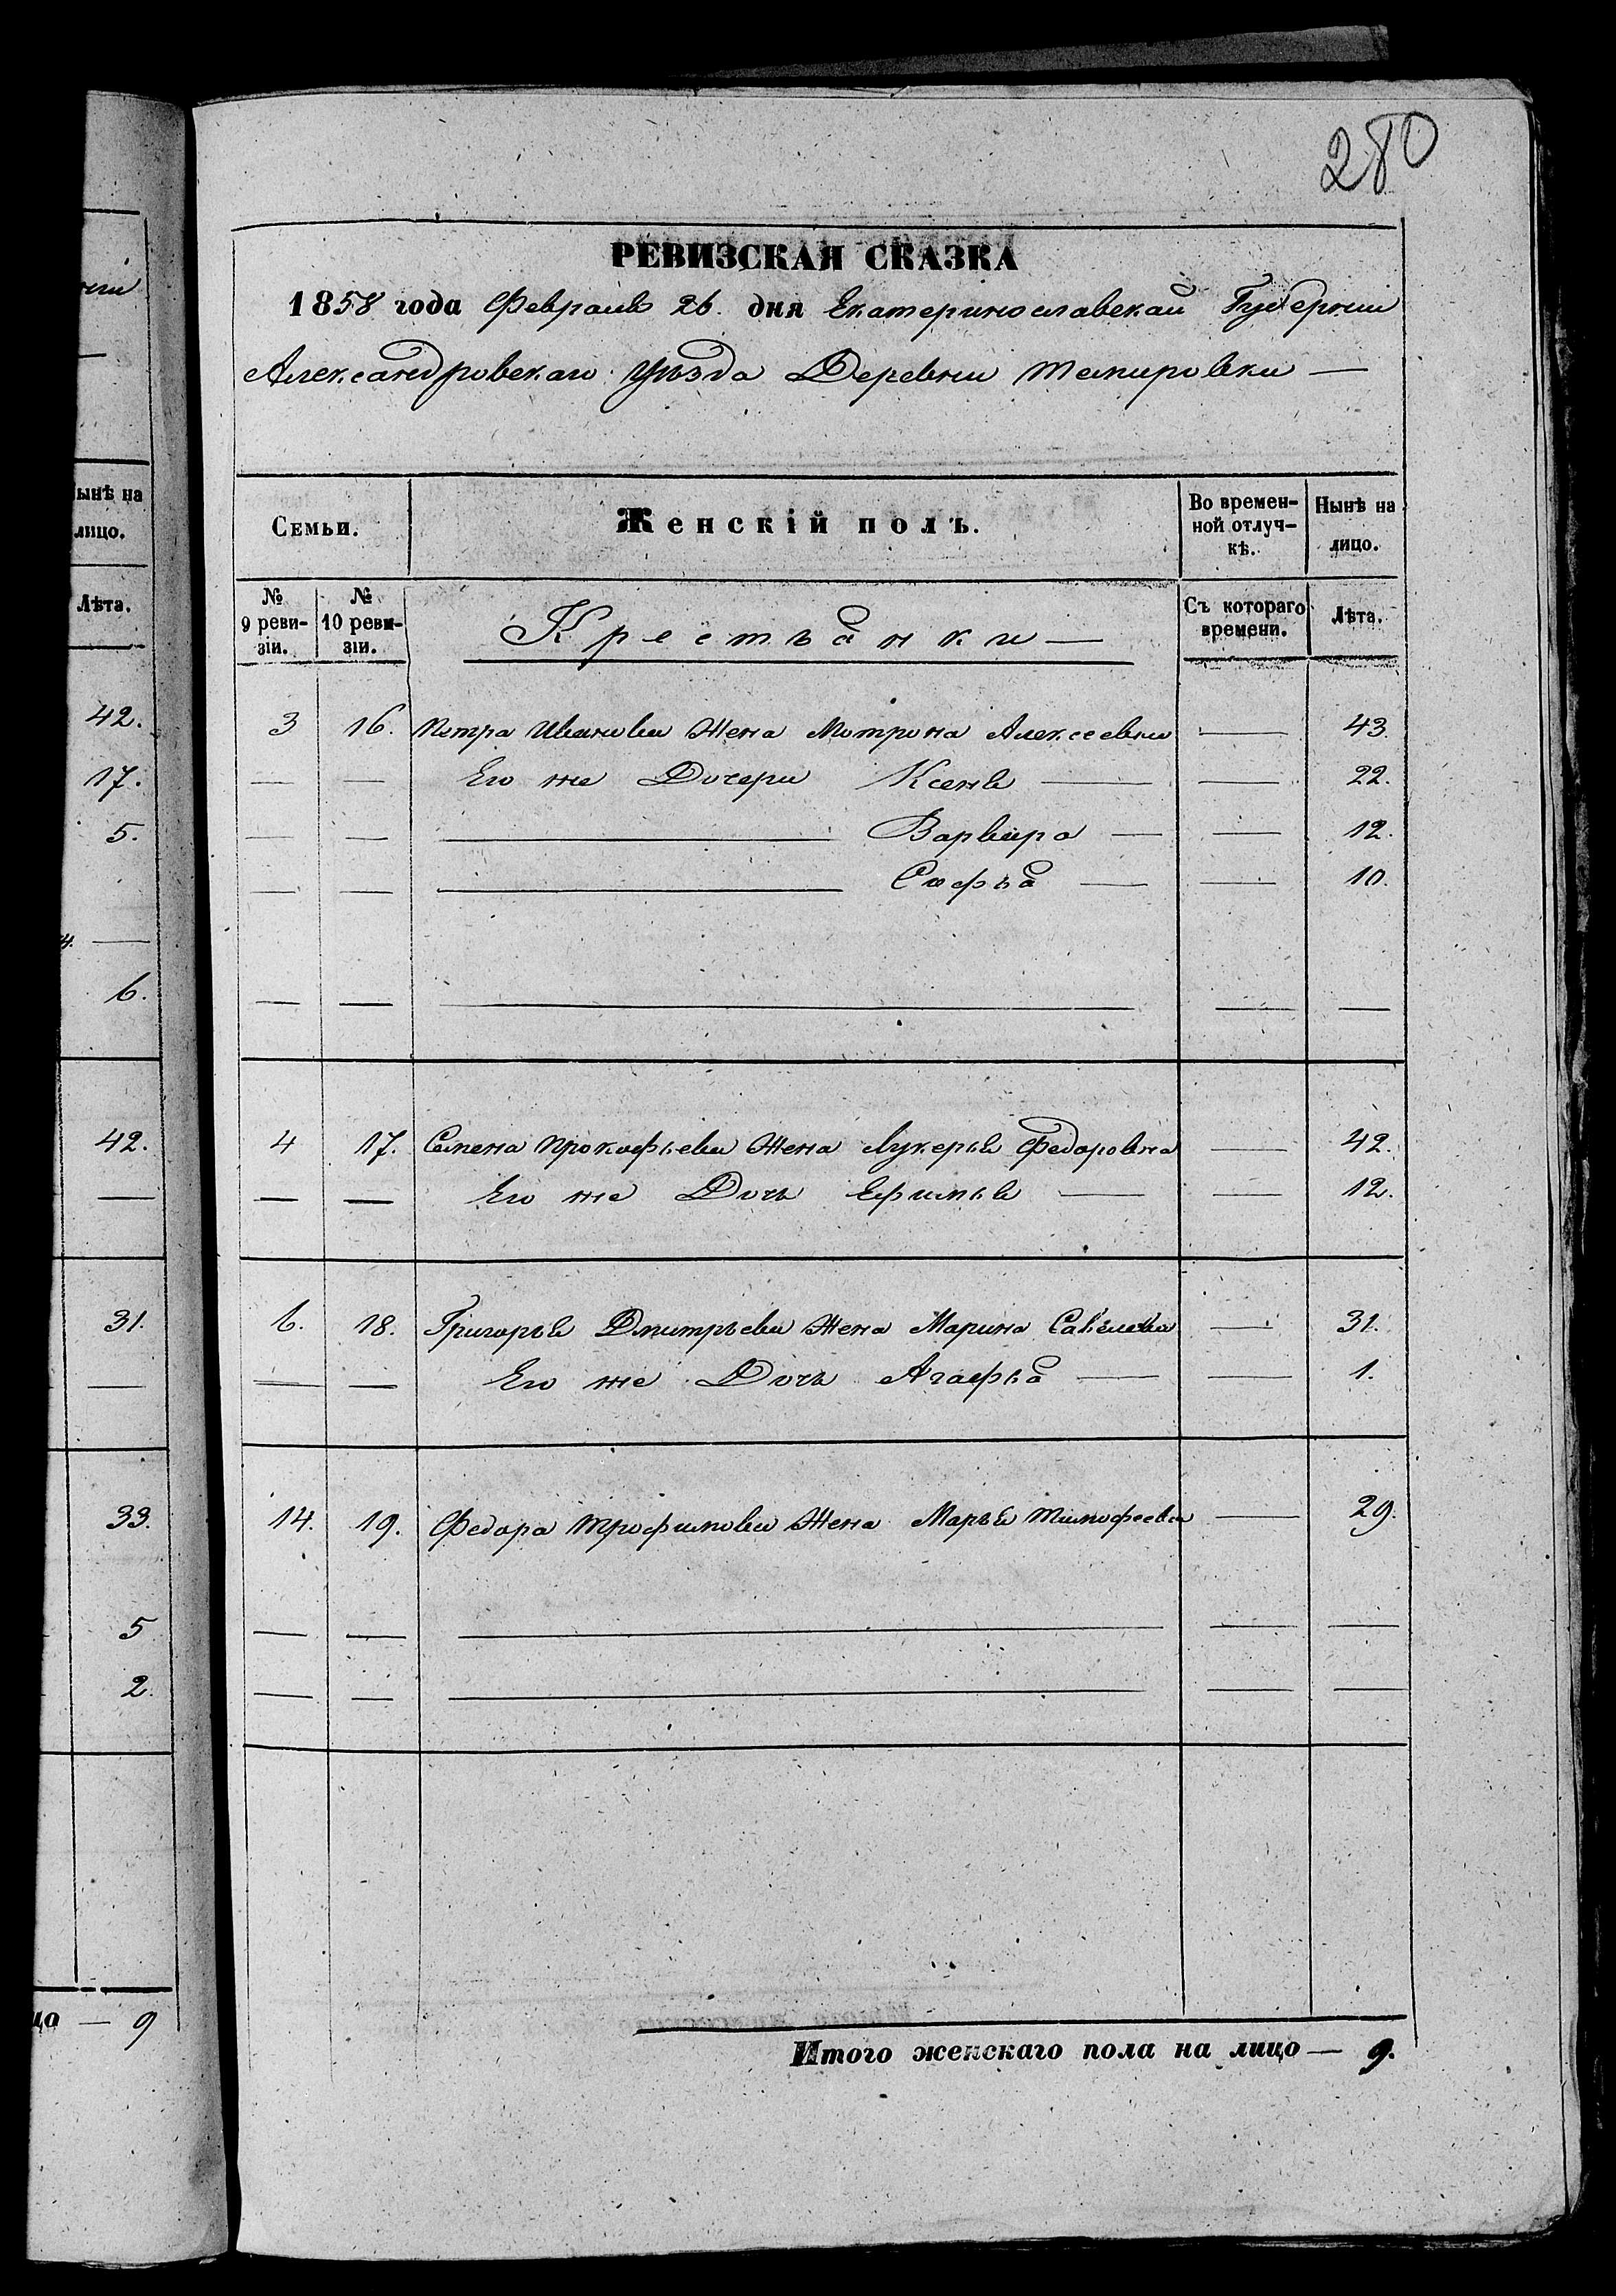 280
РЕВИЗСКАЯ СКАЗКА
1858 года Февраля 26. дня Екатеринославской Губернии
Александровскаго уѣзда Деревни Темировки —
Семьи. Женскій полъ. Во времен- Нынѣ на
ной отлуч- лицо.
кѣ.
№ № Крестьянки — Съ котораго Лѣта.
9 реви- 10 реви- времени.
зіи. зіи.
3 16. Петра Иванова Жена Мотрона Алексеевна — 43.
— — Его же Дочери Ксенья — — 22.
— — — Варвара — — 12.
— — — Софья — — 10.
— — — — —
4 17. Семена Прокофьева Жена Лукерья Федоровна — 42.
— — Его же Дочь Ефимья — — 12.
6. 18. Григорья Дмитрьева Жена Марина Савельева — 31.
— — Его же Дочь Агафья — — 1.
14. 19. Федора Трофимова Жена Марья Тимофеева — 29.
— — — — —
— — — — —
Итого женскаго пола на лицо — 9.
ынѣ на
лицо.
Лѣта.
42.
17.
5.
4. —
6.
42.
—
31.
—
33.
5
2.
цо — 9